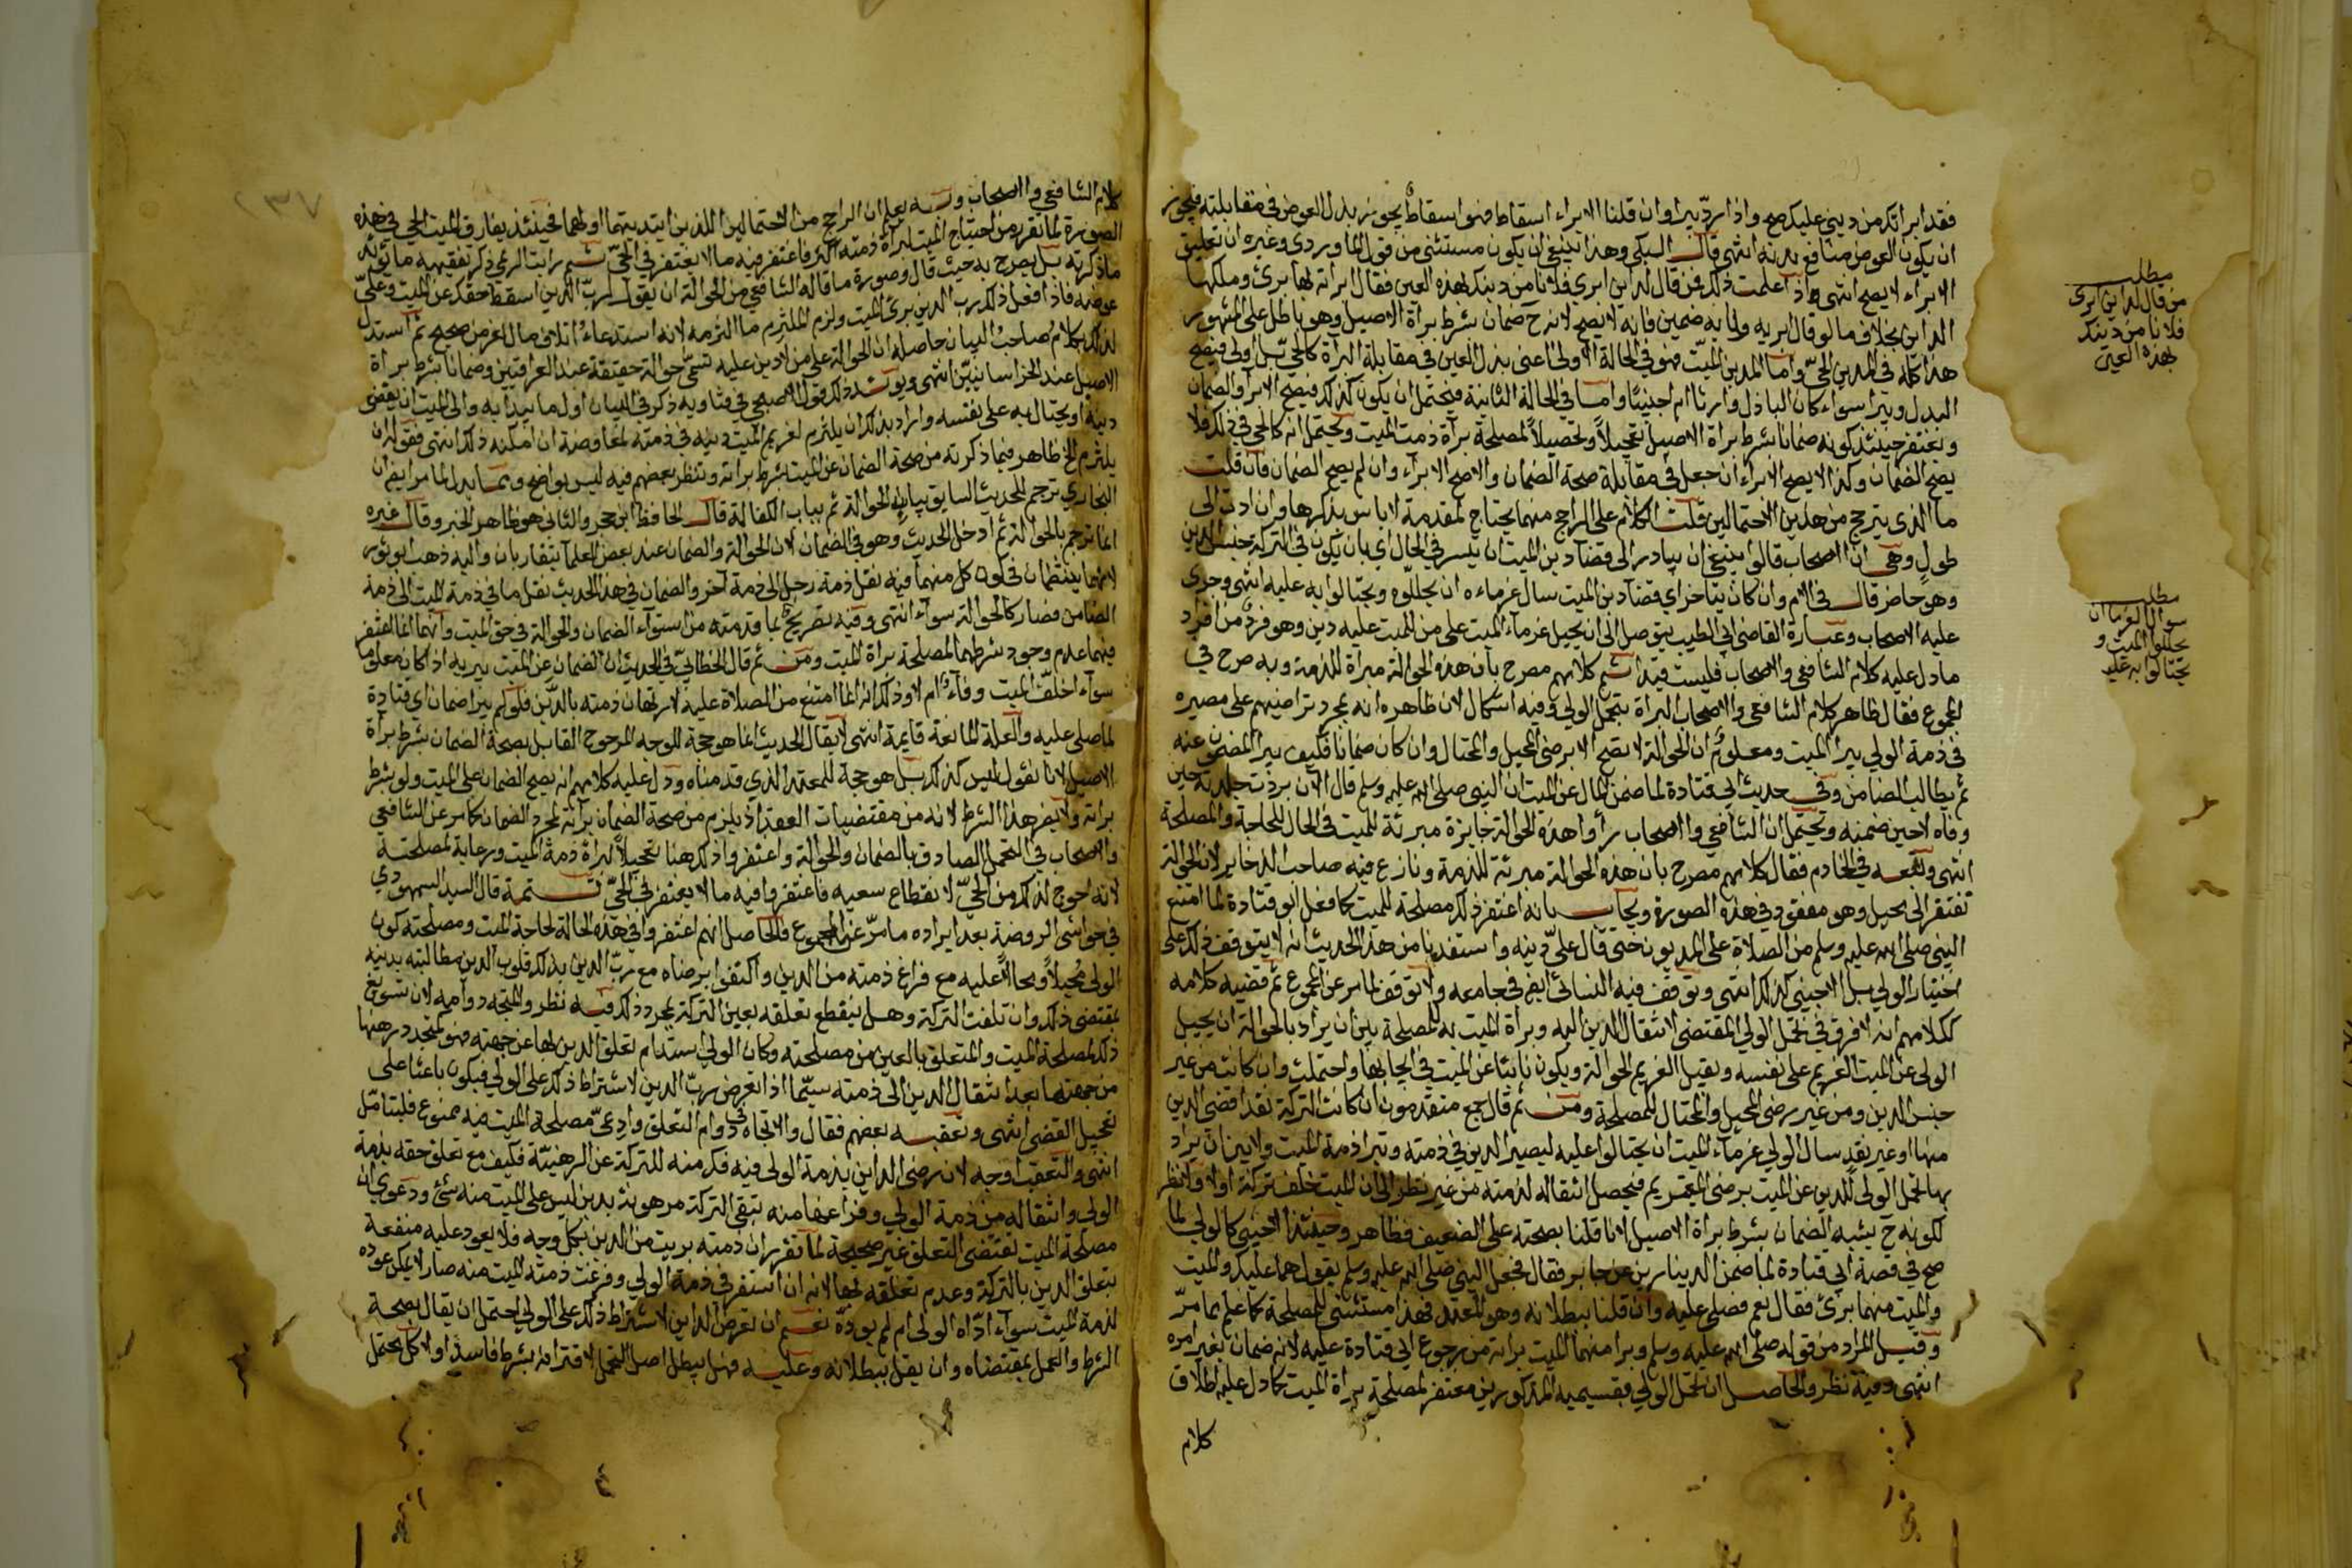 فقد ابراتك من ديني عليك صح واذا رد برا وان قلنا الابراء اسقاط فهو اسقاط يجوز بذل العوض في مقابلته فيجوز
ان يكون العوض منافع بدنه انتهى قال السبكي وهذا ينبغي ان يكون مستثنى من قول الماوردي وغيره ان تعليق
الابراء لا يصح انتهى واذا علمت ذلك فمن قال لداين ابري فلانا من دينك بهذه العين فقال ابراته بها برئ وملكها
الداين بخلاف ما لو قال ابريه وانا به ضمين فانه لا يصح لانه ح ضمان بشرط براة الاصيل وهي باطل على المشهور
هذا كله في المدين الحي واما المدين الميت فهو في الحالة الاولى اعني بذل العين في مقابلة البراة كالحي بل اولى فيصح
البدل ويبرا سواء كان الباذل وارثا ام اجنبيا واما في الحالة الثانية فيحتمل ان يكون كذلك فيصح الابرا والضمان
ويغتفر حينئذ كونه ضمانا بشرط براة الاصيل تعجيلا وتحصيلا لمصلحة براة ذمت الميت ويحتمل انه كالحي في ذلك فلا
يصح الضمان وكذا لا يصح الابراء ان جعل في مقابلة صحة الضمان والا صح الابراء وان لم يصح الضمان فان قلت
ما الذي يترجح من هذين الاحتمالين قلت الكلام على الراجح منهما يحتاج لمقدمة لا باس بذكرها وان ادت الى
طول وهي ان الاصحاب قالوا ينبغي ان يبادر الى قضاء دين الميت ان تيسر في الحال اي بان يكون في التركة جنس الدين
وهو حاضر قال في الام وان كان يتاخر اي قضاء دين الميت سال غرماءه ان يحللوه ويحتالوا به عليه انتهى وجرى
عليه الاصحاب وعبارة القاضي ابي الطيب يتوصل الى ان يحيل غرماء الميت على من للميت عليه دين وهو فرد من افراد
ما دل عليه كلام الشافعي والاصحاب فليست قيدا ثم كلامهم مصرح بان هذه الحوالة مبراة للذمة وبه صرح في
المجموع فقال ظاهر كلام الشافعي والاصحاب البراة بتحمل الولي وفيه اشكال لان ظاهره انه بمجرد تراضيهم على مصيره
في ذمة الولي يبرا الميت ومعلوم ان الحوالة لا تصح الا برضى المحيل والمحتال وان كان ضمانا فكيف يبرا المضمون عنه
ثم يطالب الضامن وفي حديث ابي قتادة لما ضمن المال عن الميت ان النبي صلى الله عليه وسلم قال الآن بردت جلدته حين
وفاه لا حين ضمنه ويحتمل ان الشافعي والاصحاب رأوا هذه الحوالة جايزة مبرئة للميت في الحال للحاجة والمصلحة
انتهى وتبعه في الخادم فقال كلامهم مصرح بان هذه الحوالة مبرئة للذمة ونازع فيه صاحب الذخاير لان الحوالة
تفتقر الى محيل وهو مفقود في هذه الصورة ويجاب بانه اغتفر ذلك مصلحة للميت كما فعل ابو قتادة لما امتنع
النبي صلى الله عليه وسلم من الصلاة على المديون حتى قال علي دينه واستفدنا من هذا الحديث انه لا يتوقف ذلك على
اختيار الولي بل الاجنبي كذلك انتهى وتوقف فيه النسائي ايض في جامعه ولا توقف لما مر عن المجموع ثم قضيه كلامه
ككلامهم انه لا فرق في تحمل الولي المقتضي لانتقال الدين اليه وبراة الميت به للمصلحة بين ان يراد بالحوالة ان يحيل
الولي عن الميت الغريم على نفسه ويقبل الغريم الحوالة ويكون نائبا عن الميت في ايجابها واحتملت وان كانت من غير
جنس الدين ومن غير رضى المحيل والمحتال للمصلحة ومن ثم قال جمع متقدمون ان كانت التركة نقدا قضى الدين
منها او غير نقد سال الولي غرماء الميت ان يحتالوا عليه ليصير الدين في ذمته وتبرا ذمة الميت ولا بين ان يراد
بها تحمل الولي للدين عن الميت برضى الغريم فيحصل انتقاله لذمته من غير نظر الى ان الميت خلف تركة اولا ولا نظر
لكونه ح يشبه الضمان بشرط براة الاصيل لانا قلنا بصحته على الضعيف فظاهر وحينئذ الاجنبي كالولي لما
صح في قصة ابي قتادة لما ضمن الدينارين عن جابر فقال فجعل النبي صلى الله عليه وسلم يقول هما عليك والميت
والميت منهما برئ فقال نعم فصلى عليه وان قلنا ببطلانه وهو المعتمد فهذا مستثنى للمصلحة كما علم بما مر
وقيل المراد من قوله صلى الله عليه وسلم وبرا منهما الميت براته من رجوع ابي قتادة عليه لانه ضمان بغير امره
انتهى وفيه نظر والحاصل ان تحمل الولي بقسيميه المذكورين مغتفر لمصلحة براة الميت كما دل عليه اطلاق
كلام
مطلب
من قال لداين ابري
فلانا من دينك
بهذه العين
مطلب
سوال الغرما ان
يحللوا الميت و
يحتالوا به عليه
٢٣٧
كلام الشافعي والاصحاب وبه يعلم ان الراجح من الاحتمالين اللذين ابتديتهما اولهما فحينئذ يفارق الميت الحي في هذه
الصورة لما تقرر من احتياج الميت لبراة ذمته اكثر فاغتفر فيه ما لا يغتفر في الحي ثم رايت الريمي ذكر تفقيهه ما يؤيد
ما ذكرته بل يصرح به حيث قال وصورة ما قاله الشافعي من الحوالة ان يقول لرب الدين اسقط حقك عن الميت وعلي
عوضه فاذا فعل ذلك رب الدين برئ الميت ولزم الملتزم ما التزمه لانه استدعاء اتلاف مال لغرض صحيح ثم استدل
لذلك بكلام صاحب البيان حاصله ان الحوالة على من لا دين عليه تسمى حوالة حقيقة عند العراقيين وضمانا بشرط براة
الاصيل عند الخراسانيين انتهى ويؤيد ذلك قول الاصبحي في فتاويه ذكر في البيان اول ما يبدا به والى الميت ان يقضى
دينه او يحتال به على نفسه واراد بذلك ان يلتزم لغريم الميت دينه في ذمته لمفاوضة ان امكنه ذلك انتهى فقوله ان
يلتزم الخ ظاهر فيما ذكرته من صحة الضمان عن الميت بشرط براته وتنظر بعضهم فيه ليس بواضح ومما يدل لما مر ايض ان
البخاري ترجم للحديث السابق بباب الحوالة ثم بباب الكفالة قال الحافظ ابن حجر والثاني هو ظاهر الخبر وقال غيره
انما ترجم بالحوالة ثم ادخل الحديث وهو في الضمان لان الحوالة والضمان عند بعض العلما يتقاربان واليه ذهب ابو ثور
لانهما ينتظمان في كون كل منهما فيه نقل ذمة رجل الى ذمة آخر والضمان في هذا الحديث نقل ما في ذمة الميت الى ذمة
الضامن فصار كالحوالة سواء انتهى وفيه تصريح بما قدمته من استواء الضمان والحوالة في حق الميت وانهما انما اغتفر
فيهما عدم وجود شرطهما لمصلحة براة الميت ومن ثم قال الخطابي في الحديث ان الضمان عن الميت يبريه اذا كان معلوما
سواء اخلف الميت وفاء ام لا وذلك انه انما امتنع من الصلاة عليه لارتهان ذمته بالدين فلو لم يبرا ضمان ابي قتادة
لما صلى عليه والعلة المانعة قايمة انتهى لا يقال الحديث انما هو حجة للوجه المرجوح القايل بصحة الضمان بشرط براة
الاصيل لانا نقول ليس كذلك بل هو حجة للمعتمد الذي قدمناه ودل عليه كلامهم انه يصح الضمان على الميت ولو بشرط
براته ولا يضر هذا الشرط لانه من مقتضيات العقد اذ يلزم من صحة الضمان براته بمجرد الضمان كما مر عن الشافعي
والاصحاب في التحمل الصادق بالضمان والحوالة واغتفروا ذلك هنا تعجيلا لبراة ذمة الميت ورعاية لمصلحته
لانه احوج لذلك من الحي لانقطاع سعيه فاغتفروا فيه ما لا يغتفر في الحي تتمة قال السيد السمهودي
في حواشي الروضة بعد ايراده ما مر عن المجموع والحاصل انهم اغتفروا في هذه الحالة لحاجة الميت ومصلحته كون
الولي محيلا ومحالا عليه مع فراغ ذمته من الدين واكتفوا برضاه مع رب الدين بذلك فلرب الدين مطالبته بدينه
بمقتضى ذلك وان تلفت التركة وهل ينقطع تعلقه بعين التركة بمجرد ذلك فيه نظر والمتجه دوامه لان تسويغ
ذلك لمصلحة الميت والمتعلق بالعين من مصلحته وكان الولي استدام تعلق الدين بها عن جهته فهو لمتجدد رهنها
من جهته ما بعد انتقال الدين الى ذمته سيما اذا تعرض رب الدين لاشتراط ذلك على الولي فيكون باعثا على
تعجيل القضى انتهى وتعقبه بعضهم فقال والاتجاه في دوام التعلق وادعى مصلحة الميت فيه ممنوع فليتامل
انتهى والتعقب اوجه لان رضى الداين بذمة الولي فيه فك منه للتركة عن الرهنية فكيف مع تعلق حقه بذمة
الولي وانتقاله من ذمة الولي وفراغها منه تبقى التركة مرهونة بدين ليس على الميت منه شئ ودعوى ان
مصلحة الميت تقتضي التعلق غير صحيحة لما تقرر ان ذمته بريت من الدين بكل وجه فلا يعود عليه منفعة
بتعلق الدين بالتركة وعدم تعلقه بها لانه ان استقر في ذمة الولي وفرغت ذمته الميت منه صار لا يمكن عوده
لذمة الميت سواء اداه الولي ام لم يوده نعم ان تعرض الداين لاشتراط ذلك على الولي احتمل ان يقال بصحة
الشرط والعمل بمقتضاه وان يقل ببطلانه وعليه فهل يبطل اصل التحمل لاقترانه بشرط فاسد اولا كل محتمل